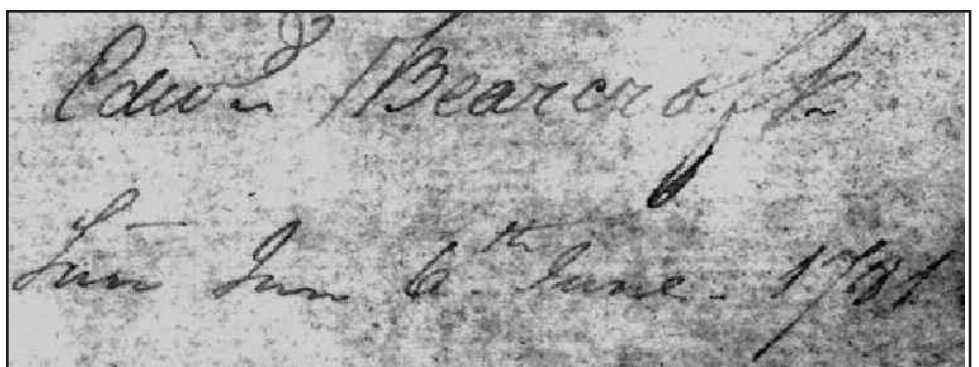 Edwd Bearcroft
Inn 6th June. 1781.